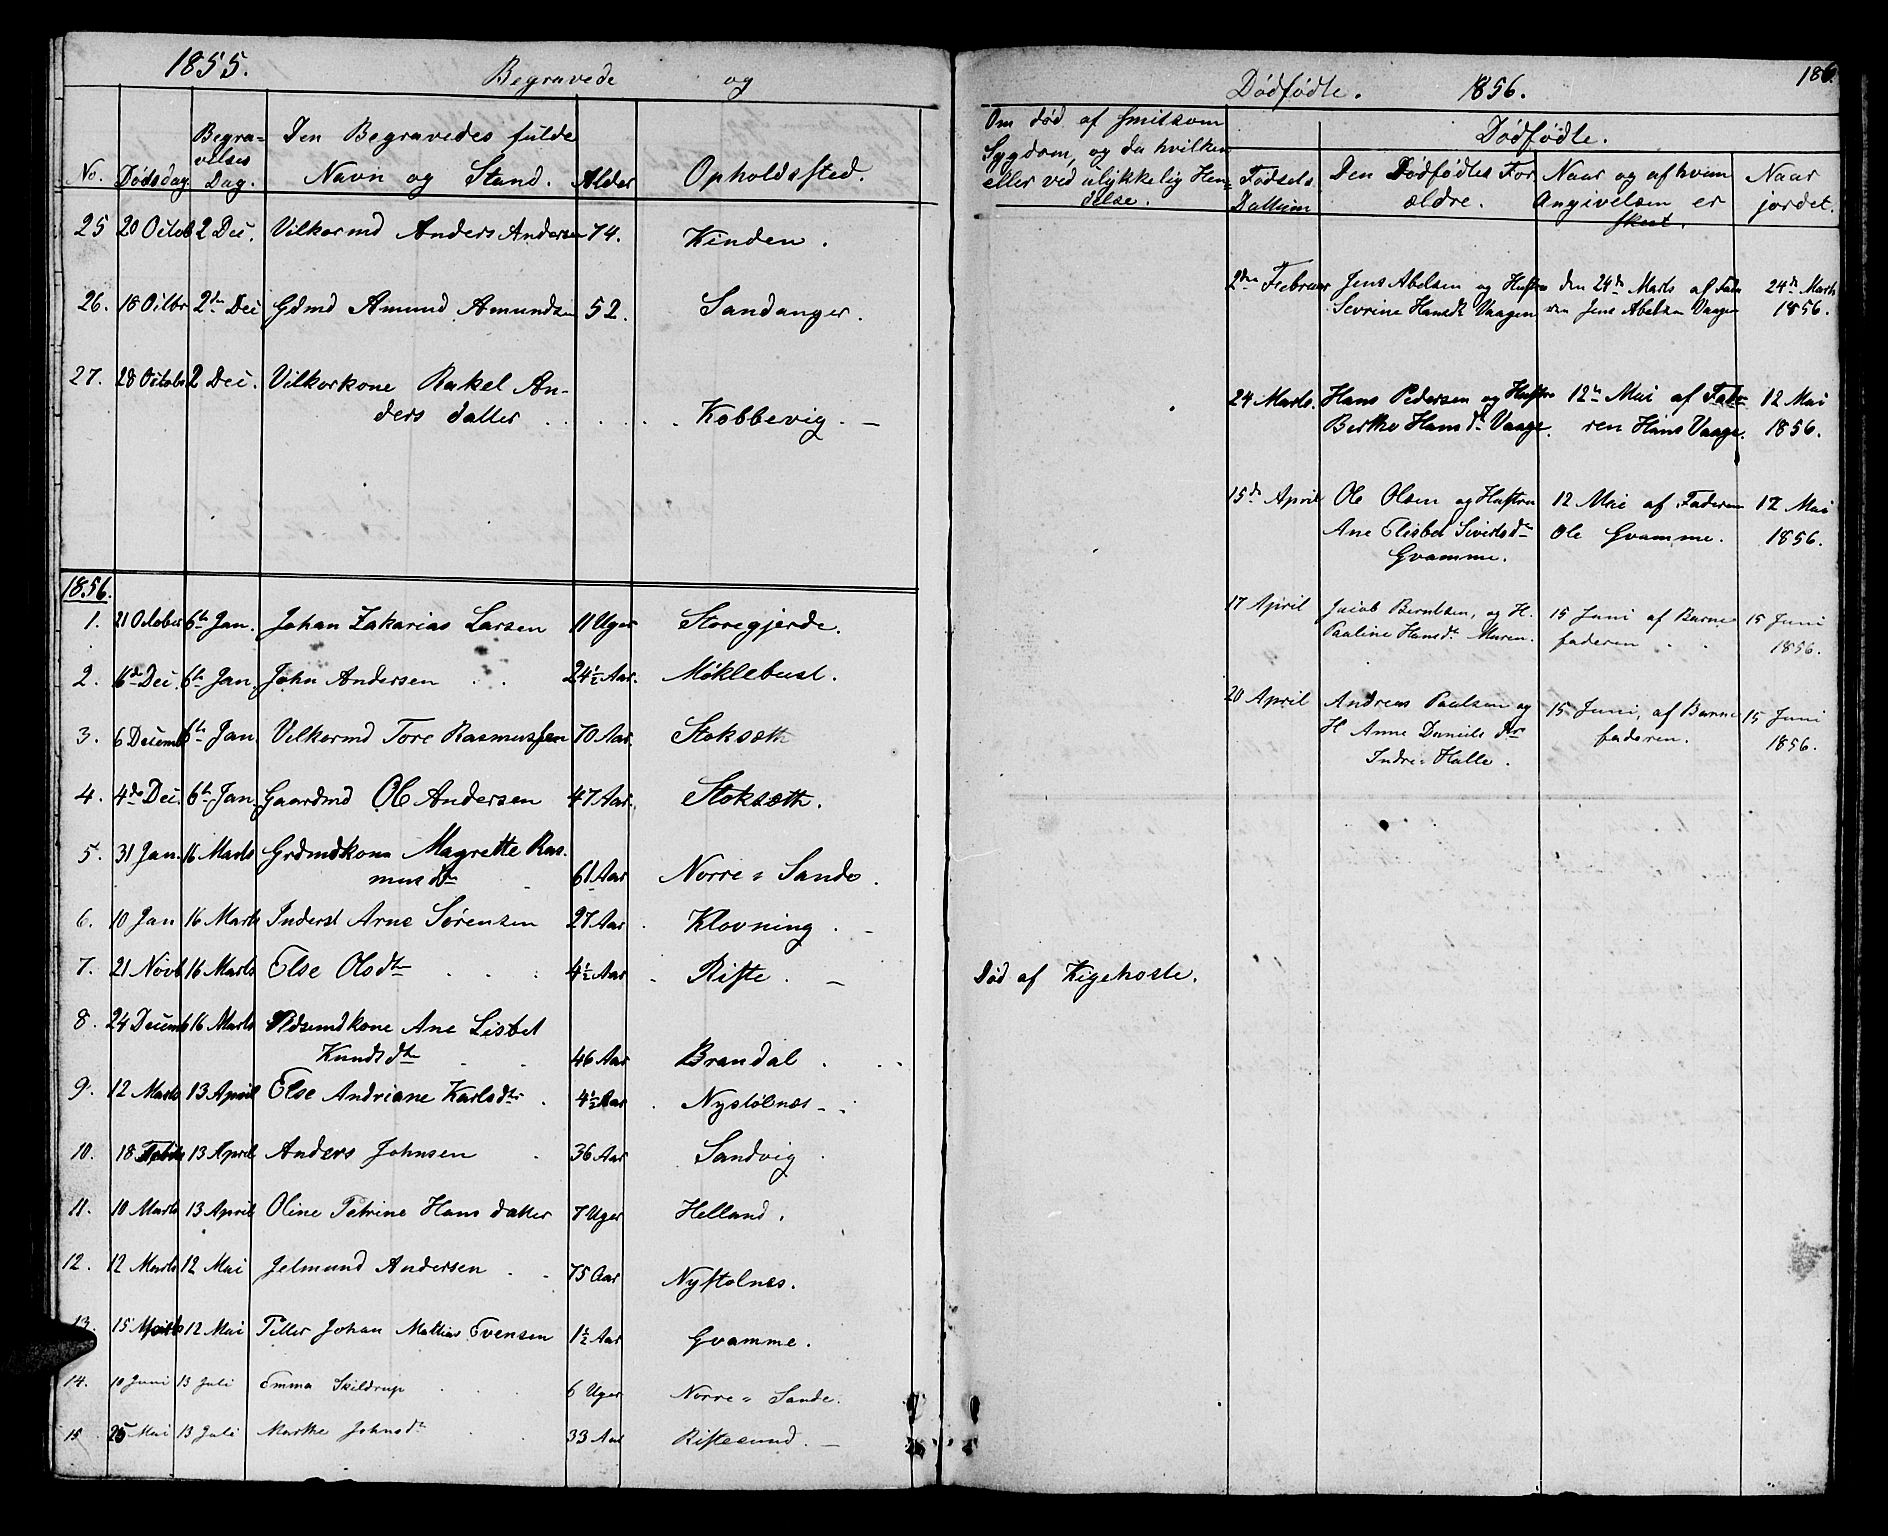 1855.
Begravede og
No.
Dødsdag.
Begra-
velses
Dag.
Den Begravedes fulde
Navn og Stand.
Alder
Opholdssted.
25 20 Octob 2 Dec. Vilkormd Anders Andersen 74. Kinden.
26. 18 Octbr 2de Dec Gdmd Amund Amundsen 52. Sandanger.
27. 28 Octobr 2 Dec. Vilkorkone Rakel An-
ders datter . . . . . . Kobbevig. -
1856.
1. 21 October 6te Jan. Johan Zakarias Larsen 11 Uger Storegjerde.
2. 6de Dec. 6te Jan. John Andersen . . 24½ Aar. Møklebust.
3. 6 Decemb 6te Jan. Vilkormd Tore Rasmussen 70 Aar. Stoksæth
4. 4de Dec. 6te Jan. Gaardmd Ole Andersen 47 Aar. Stoksæth.
5. 31 Jan. 16 Marts Grdmdkone Magrette Ras-
musdtr 61 Aar Norre = Sande.
6. 10 Jan 16 Marts Inderst Arne Sørensen 27 Aar. Klovning. -
7. 21 Novb 16 Marts Else Olsdtr . . . 4½ Aar. Riste. -
8. 24 Decemb 16 Marts Pdsemdkone Ane Lisbet
Knudsdtr . . 46 Aar Brandal . . .
9. 12 Marts 13 April Else Andriane Karlsdtr. 4½ Aar. Nystølnes - .
10. 18 13 April Anders Johnsen . 36 Aar. Sandvig.
11. 10 Marts 13 April Oline Petrine Hans datter 7 Uger Helland.
12. 12 Marts 12 Mai Jelmund Andersen . . 75 Aar Nystølnes.
13. 15 Marts 12 Mai Petter Johan Mathias Evensen 1½ Aar Gvamme.
14. 10 Juni 13 Juli Emma Skildrup . . . 6 Uger Norre = Sande.
15 25 Mai 13 Juli Marthe Johnsdtr . . 33 Aar Ristesund. -
Dødfødte. 1856.
186.
Om død af smitsom
Sygdom, og da hvilken
eller ved ulykkelig Hen-
delse.
Dødfødte.
Fødsels
Dattum
Den Dødfødtes For
ældre.
Naar og af hvem
Angivelsen er
skeet.
Naar
jordet.
2den Februar Jens Abelsen og Hustru den 24de Marts af Fade 24de Marts
Sevrine Hansdtr Vaagen ren Jens Abelsen Vaagen 1856.
24 Marts. Hans Pedersen og Hustru 12te Mai af Fade- 12 Mai
Berthe Hans dtr Vaage. ren Hans Vaage. 1856.
15de April Ole Olsen og Hustru 12 Mai af Faderen 12 Mai
Ane Elisbet Sivertsdtr Ole Gvamme. 1856.
Gvamme.
17 April Jacob Berntsen, og H. 15 Juni af Barne 15 Juni
Pauline Hansdtr Muren. faderen . . 1856.
20 April Andreas Paulsen og 15 Juni, af Barne 15 Juni
H Anne Daniels dtr faderen. 1856.
Indre = Halle.
Død af Kigehoste.